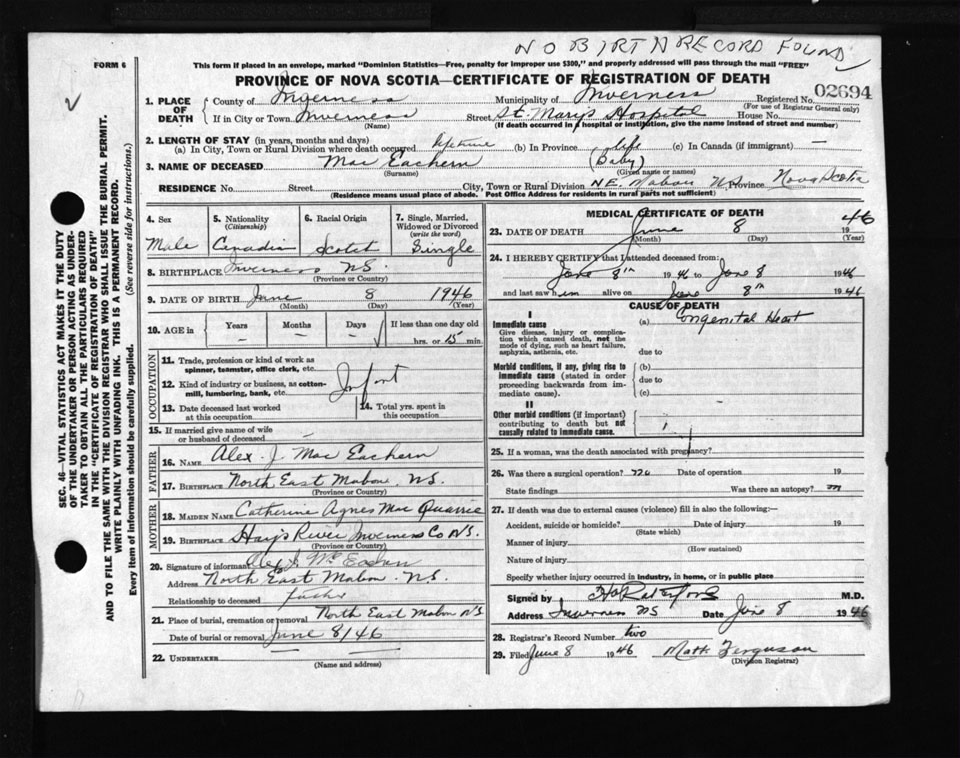 NO BIRTH RECORD FOUND
FORM 6
This form if placed in an envelope, marked "Dominion Statistics—Free, penalty for improper use $300," and properly addressed will pass through the mail "FREE"
PROVINCE OF NOVA SCOTIA—CERTIFICATE OF REGISTRATION OF DEATH
02694
SEC. 46—VITAL STATISTICS ACT MAKES IT THE DUTY
OF THE UNDERTAKER OR PERSON ACTING AS UNDER-
TAKER TO OBTAIN ALL THE PARTICULARS REQUIRED
IN THE "CERTIFICATE OF REGISTRATION OF DEATH"
AND TO FILE THE SAME WITH THE DIVISION REGISTRAR WHO SHALL ISSUE THE BURIAL PERMIT.
WRITE PLAINLY WITH UNFADING INK. THIS IS A PERMANENT RECORD.
Every item of information should be carefully supplied. (See reverse side for instructions.)
1. PLACE OF DEATH County of Inverness Municipality of Inverness Registered No.
(For use of Registrar General only)
If in City or Town Inverness Street St. Mary's Hospital House No.
(Name) (If death occurred in a hospital or institution, give the name instead of street and number)
2. LENGTH OF STAY (in years, months and days)
(a) In City, Town or Rural Division where death occurred lifetime (b) In Province life (c) In Canada (if immigrant) —
3. NAME OF DECEASED Mac Eachern (Baby)
(Surname) (Given name or names)
RESIDENCE No. Street City, Town or Rural Division N.E. Mabou N.S. Province Nova Scotia
(Residence means usual place of abode. Post Office Address for residents in rural parts not sufficient)
4. Sex 5. Nationality 6. Racial Origin 7. Single, Married,
(Citizenship) Widowed or Divorced
(write the word)
Male Canadian Scotch Single
8. BIRTHPLACE Inverness NS.
(Province or Country)
9. DATE OF BIRTH June 8 1946
(Month) (Day) (Year)
10. AGE in Years Months Days If less than one day old
— — hrs. or 15 min.
OCCUPATION
11. Trade, profession or kind of work as
spinner, teamster, office clerk, etc.
12. Kind of industry or business, as cotton-
mill, lumbering, bank, etc. Infant
13. Date deceased last worked
at this occupation
14. Total yrs. spent in
this occupation
15. If married give name of wife
or husband of deceased
FATHER
16. NAME Alex. J. Mac Eachern
17. BIRTHPLACE North East Mabou, N.S.
(Province or Country)
MOTHER
18. MAIDEN NAME Catherine Agnes Mac Quarrie
19. BIRTHPLACE Hay's River Inverness Co N.S.
(Province or Country)
20. Signature of informant Alex J. McEachern
Address North East Mabou. N.S.
Relationship to deceased father
21. Place of burial, cremation or removal North East Mabou NS
Date of burial or removal June 8/46
22. UNDERTAKER
(Name and address)
MEDICAL CERTIFICATE OF DEATH
23. DATE OF DEATH June 8 1946
(Month) (Day) (Year)
24. I HEREBY CERTIFY that I attended deceased from:
June 8th 1946 to June 8 1946
and last saw him alive on June 8th 1946
CAUSE OF DEATH
I
Immediate cause (a) Congenital Heart
Give disease, injury or complica-
tion which caused death, not the
mode of dying, such as heart failure,
asphyxia, asthenia, etc. due to
Morbid conditions, if any, giving rise to (b)
immediate cause (stated in order due to
proceeding backwards from im-
mediate cause). (c)
II
Other morbid conditions (if important)
contributing to death but not
causally related to immediate cause.
25. If a woman, was the death associated with pregnancy?
26. Was there a surgical operation? no Date of operation 19
State findings Was there an autopsy?
27. If death was due to external causes (violence) fill in also the following:—
Accident, suicide or homicide? Date of injury 19
(State which)
Manner of injury
(How sustained)
Nature of injury
Specify whether injury occurred in industry, in home, or in public place
Signed by M.D.
Address Inverness NS Date June 8 1946
28. Registrar's Record Number two
29. Filed June 8 1946 Matt. Ferguson
(Division Registrar)